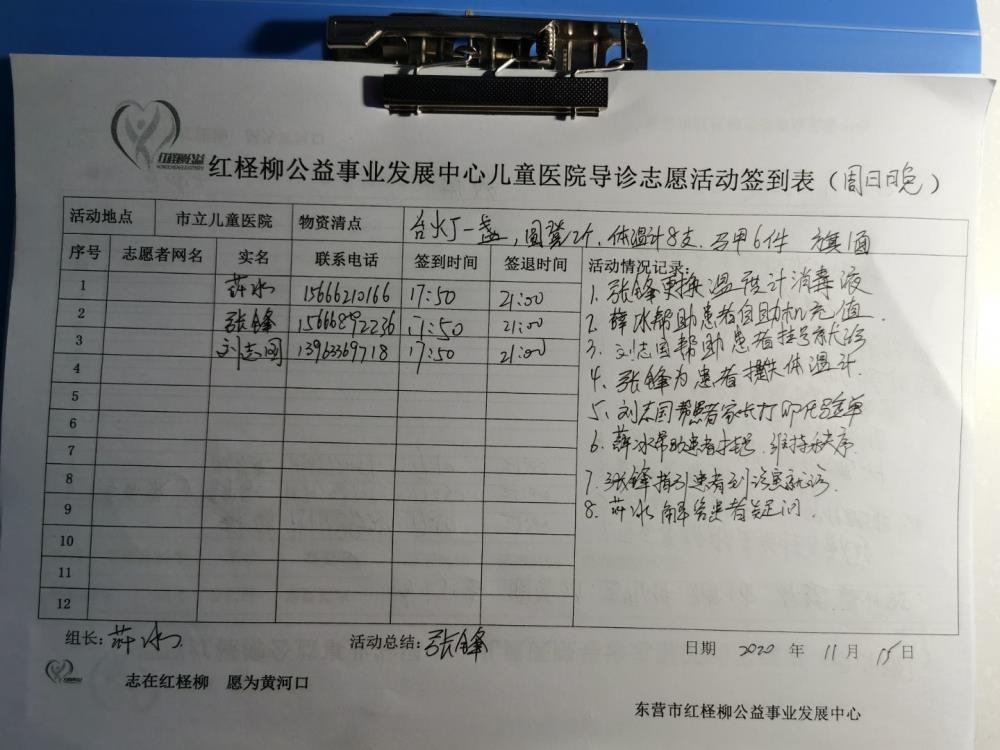 红柽柳公益
红柽柳公益事业发展中心儿童医院导诊志愿活动签到表（周日晚）
活动地点 市立儿童医院 物资清点 台火丁一盏，圆凳2个，体温计8支，马甲6件 旗1面
序号 志愿者网名 实名 联系电话 签到时间 签退时间 活动情况记录：
1 薛冰 15666210166 17:50 21:00
2 张锋 15666892236 17:50 21:00
3 刘志国 13963369718 17:50 21:00
4
5
6
7
8
9
10
11
12
1、张锋更换温度计消毒液
2、薛冰帮助患者自助机充值.
3、刘志国帮助患者挂号就诊
4、张锋为患者提供体温计.
5、刘志国帮患者家长打印化验单
6、薛冰帮助患者挂号、维持秩序.
7、张锋指引患者到诊室就诊.
8、薛冰解答患者疑问.
组长：薛冰 活动总结：张锋 日期 2020 年 11 月 15 日
志在红柽柳 愿为黄河口
东营市红柽柳公益事业发展中心